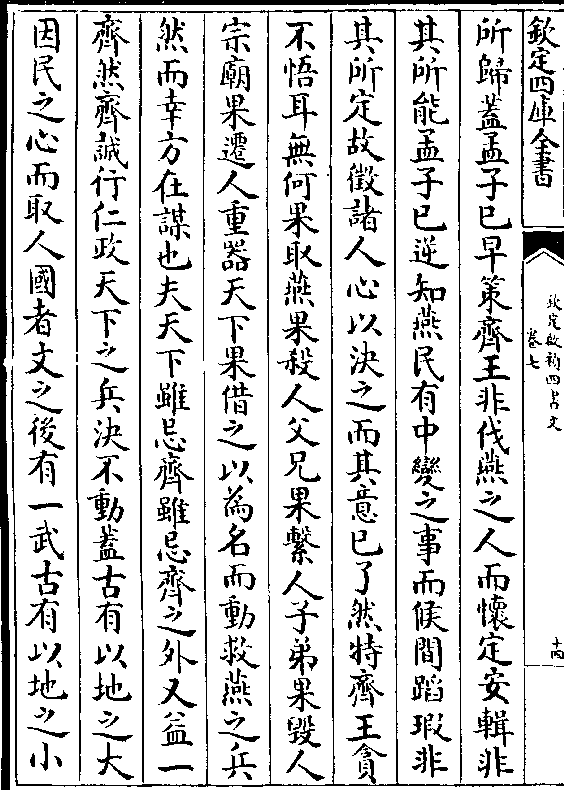 欽定四庫全書
欽定啟禎四書文
卷七
十四
所歸蓋孟子已早策齊王非伐燕之人而懷定安輯非
其所能孟子已逆知燕民有中變之事而候間蹈瑕非
其所定故徵諸人心以決之而其意已了然特齊王貪
不悟耳無何果取燕果殺人父兄果繫人子弟果毀人
宗廟果遷人重器天下果借之以為名而動救燕之兵
然而幸方在謀也夫天下雖忌齊雖忌齊之外又益一
齊然齊誠行仁政天下之兵決不動蓋古有以地之大
因民之心而取人國者文之後有一武古有以地之小